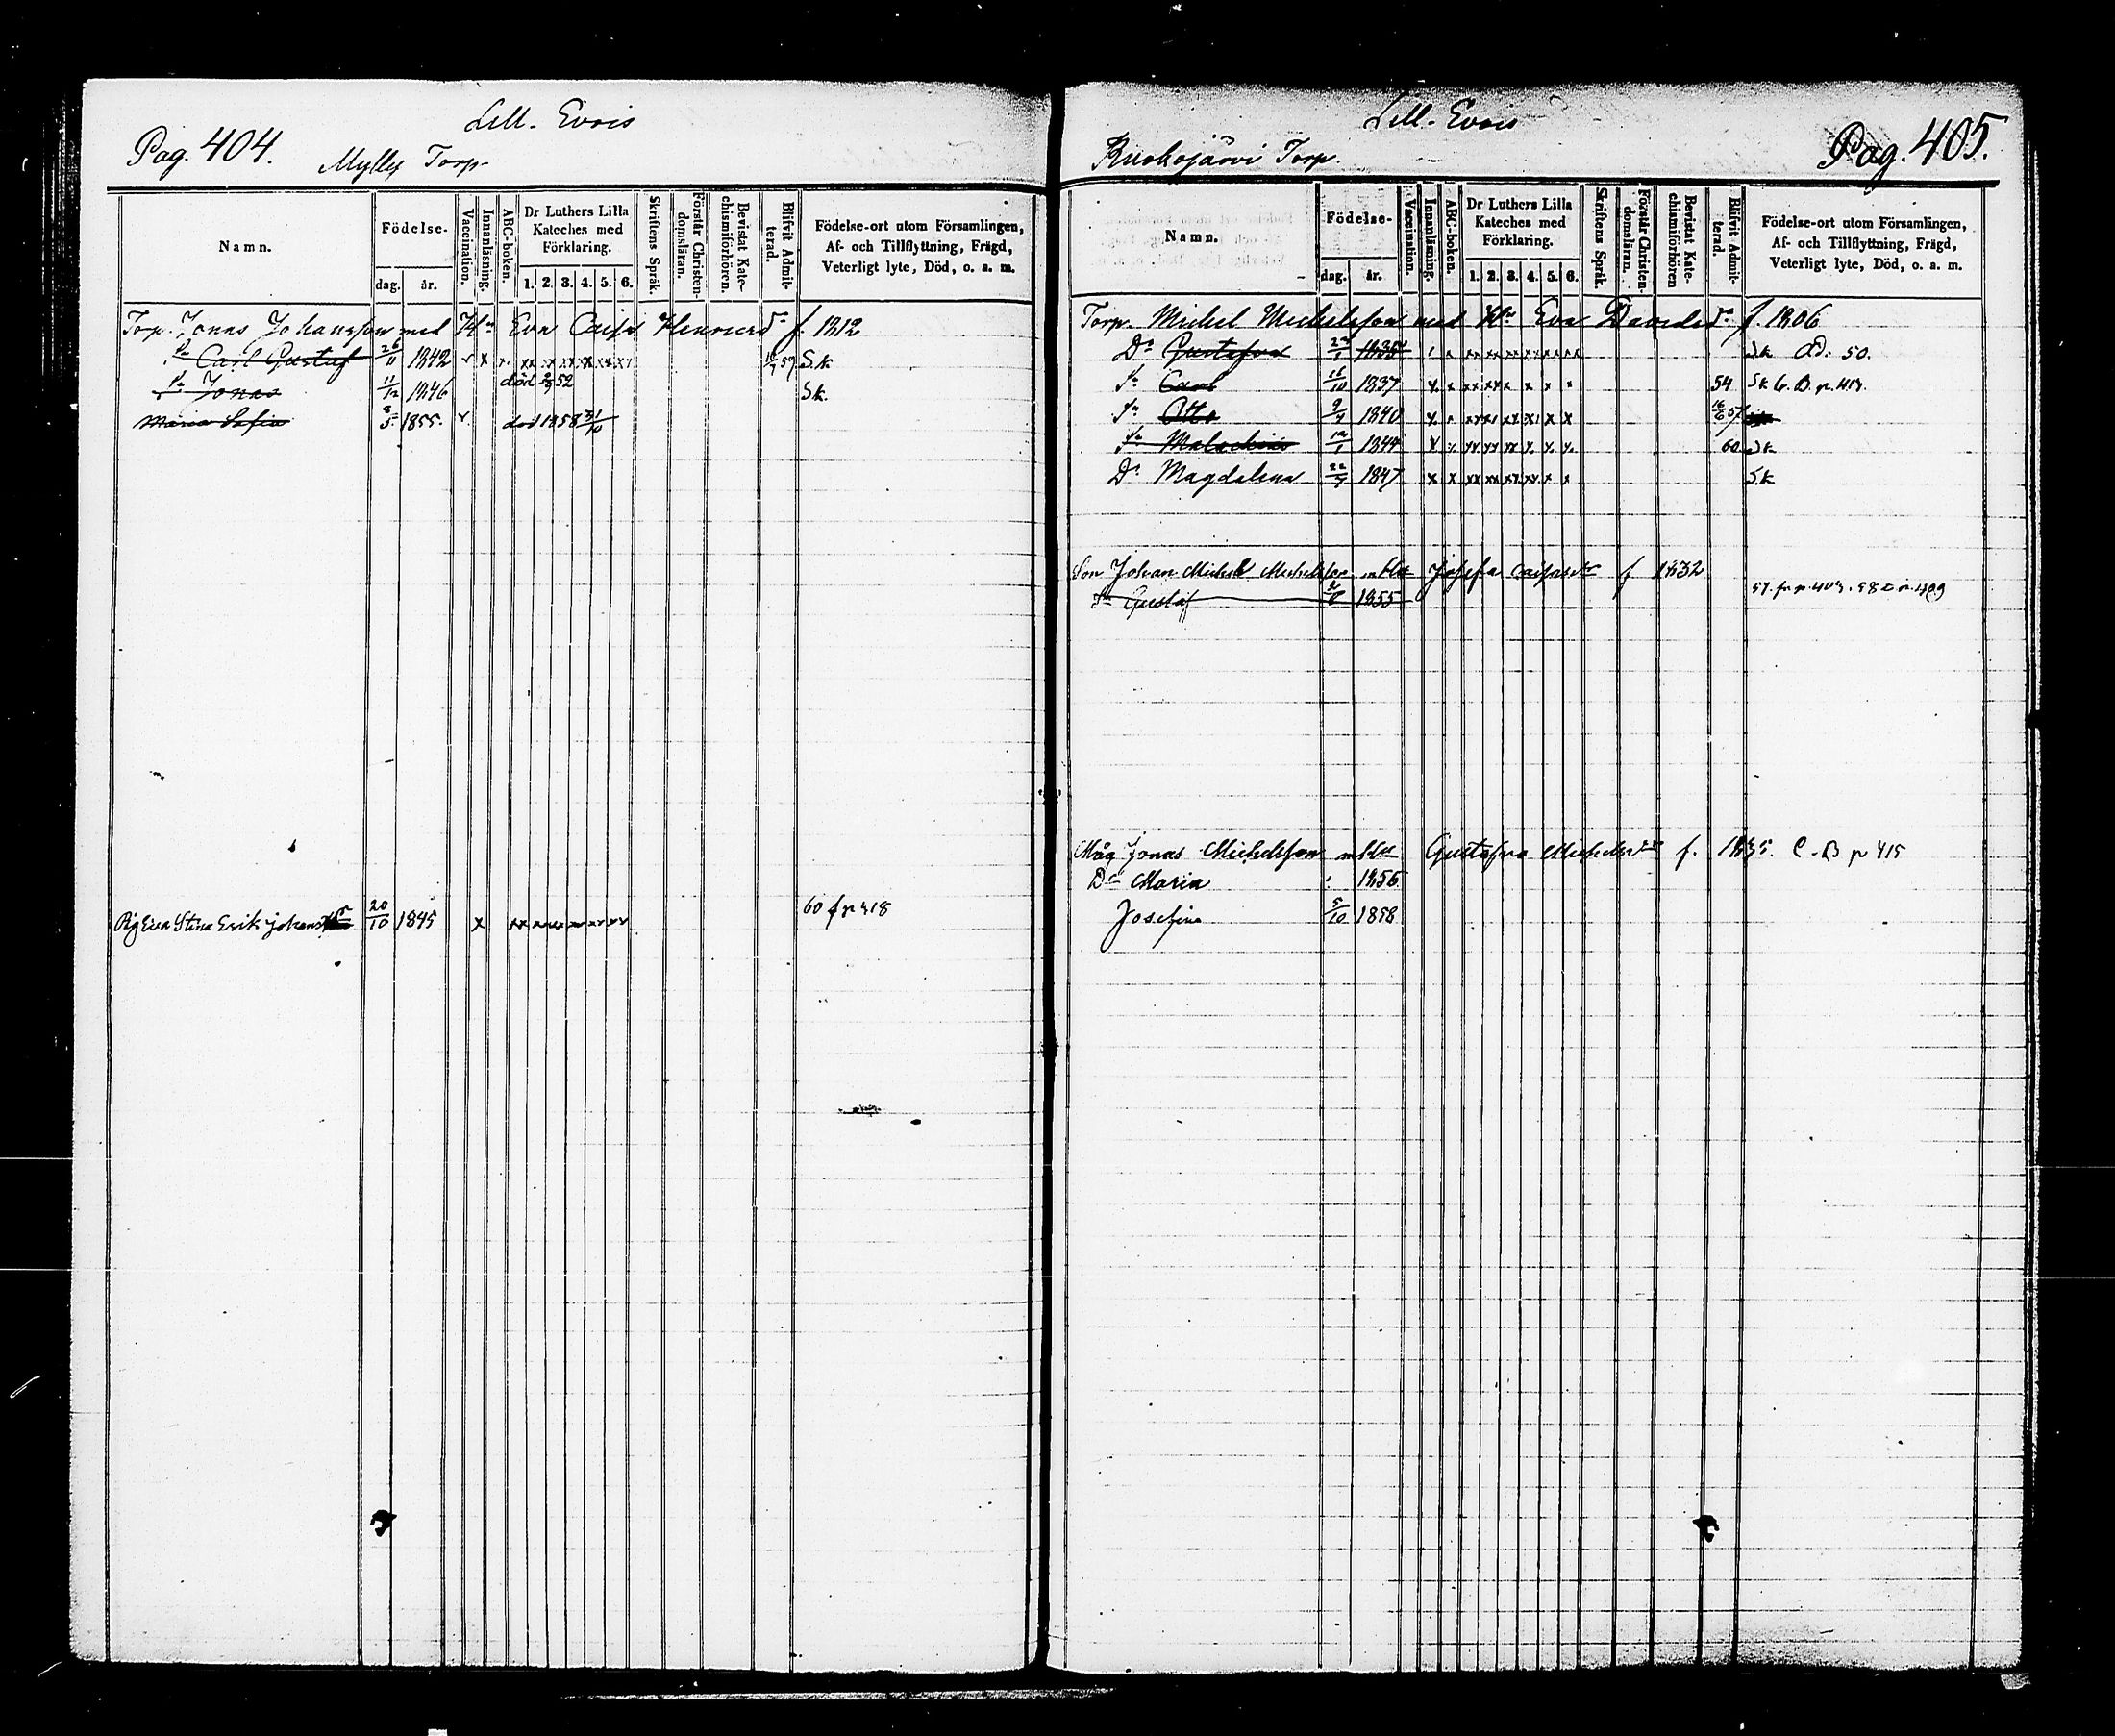 Lill. Evois
Pag. 404.
Mylly Torp
Namn.
Födelse-
dag. år.
Vaccination.
Innanläsning.
ABC-boken.
Dr Luthers Lilla Kateches med Förklaring.
1. 2. 3. 4. 5. 6.
Skriftens Språk.
Förstår Christendomsläran.
Bevistat Katechismiförhören.
Blifvit Admitterad.
Födelse-ort utom Församlingen, Af- och Tillflyttning, Frägd, Veterligt lyte, Död, o. a. m.
Torp. Jonas Johansson med Hu Eva Caisa Henricsdr f. 1812
Sn Carl Gustaf 26/11 1842 57 S.k.
Sn Jonas 11/12 1846 död 52 Sk.
Maria Sofia 8/5 1855. död 1858 31/10
Pig Eva Stina Erik Johans 20/10 1845 x 60 f p 418
Lill. Evois
Ruokojärvi Torp.
Pag. 405.
Namn.
Födelse-
dag. år.
Vaccination.
Innanläsning.
ABC-boken.
Dr Luthers Lilla Kateches med Förklaring.
1. 2. 3. 4. 5. 6.
Skriftens Språk.
Förstår Christendomsläran.
Bevistat Katechismiförhören
Blifvit Admitterad.
Födelse-ort utom Församlingen, Af- och Tillflyttning, Frägd, Veterligt lyte, Död, o. a. m.
Torp. Michel Michelsson med Hu Eva Davidsdr. f. 1806
Dr Gustafva 1835 Sk Ad. 50.
Sn Carl 16/10 1837 54 Sk
Sn Otto 1840 16/6 57
Sn Malachias 1844 60. Sk
Dr Magdalena 1847 S.k
Son Johan Michel Michelsson m Hu Josefa Caisasdr f 1832
Sn Gustaf 1855 57. fr p. 403. 58 p. 409
Måg Jonas Michelsson m Hu Gustafva Michelsdr f. 1835. C. B p 415
Dr Maria 1856
Josefina 5/10 1858